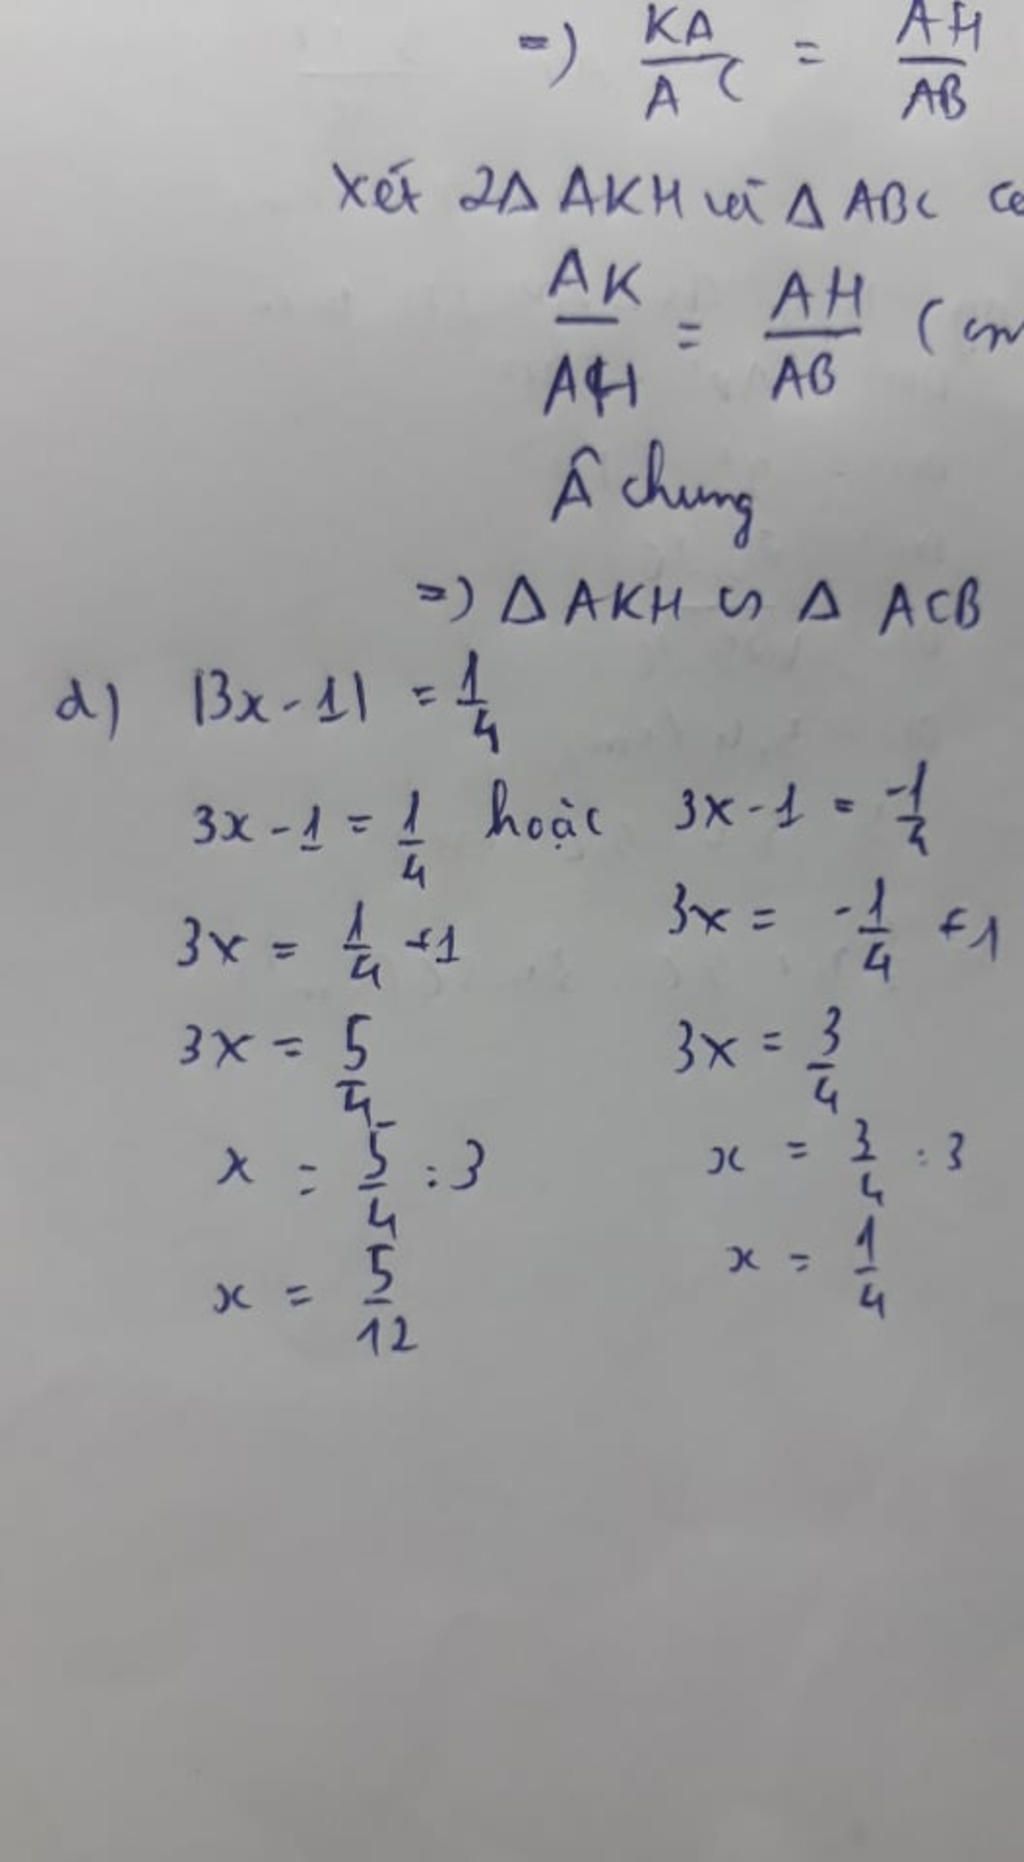 =) KA/AC = AH/AB
Xét 2Δ AKH và Δ ABC
AK/AH = AH/AB (cm
Â chung
=) Δ AKH ∽ Δ ACB
d) |3x - 1| = 1/4
3x - 1 = 1/4 hoặc 3x - 1 = -1/4
3x = 1/4 + 1 3x = -1/4 + 1
3x = 5/4 3x = 3/4
x = 5/4 : 3 x = 3/4 : 3
x = 5/12 x = 1/4